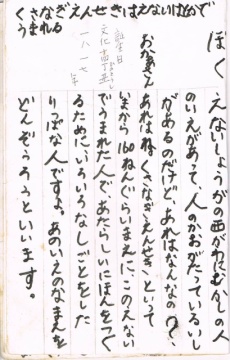 ぼく
えないしょうがの西がわにむかしの人
のいえがあって、人のかおがたっているいし
があるのだけど、あれはなんなの?
おかあさん
あれはね、くさなぎえんせきといって
いまから160ねんぐらいまえに、このえない
でうまれた人で、あたらしいにほんをつく
るために、いろいろなしごとをした
りっぱな人ですよ。あのいえのなまえを
どんぞうろうといいます。
誕生日
一八一七年